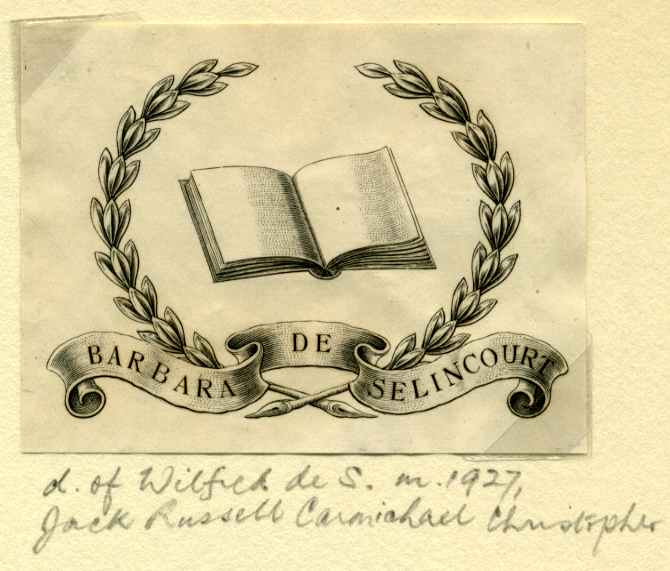 BARBARA DE SELINCOURT
d. of Wilfred de S. m. 1927,
Jack Russell Carmichael Christopher